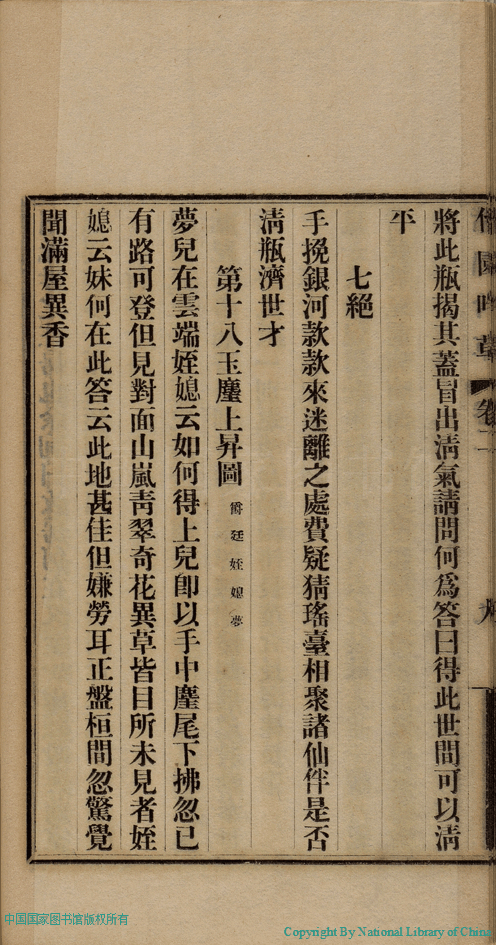 將此瓶揭其蓋冒出淸氣請問何爲答曰得此世間可以淸
平
七絕
手挽銀河款款來迷離之處費疑猜瑤臺相聚諸仙伴是否
淸瓶濟世才
第十八玉麈上昇圖 爵廷姪媳夢
夢兒在雲端姪媳云如何得上兒卽以手中麈尾下拂忽已
有路可登但見對面山嵐靑翠奇花異草皆目所未見者姪
媳云妹何在此答云此地甚佳但嫌勞耳正盤桓間忽驚覺
聞滿屋異香
中国国家图书馆版权所有
Copyright By National Library of China